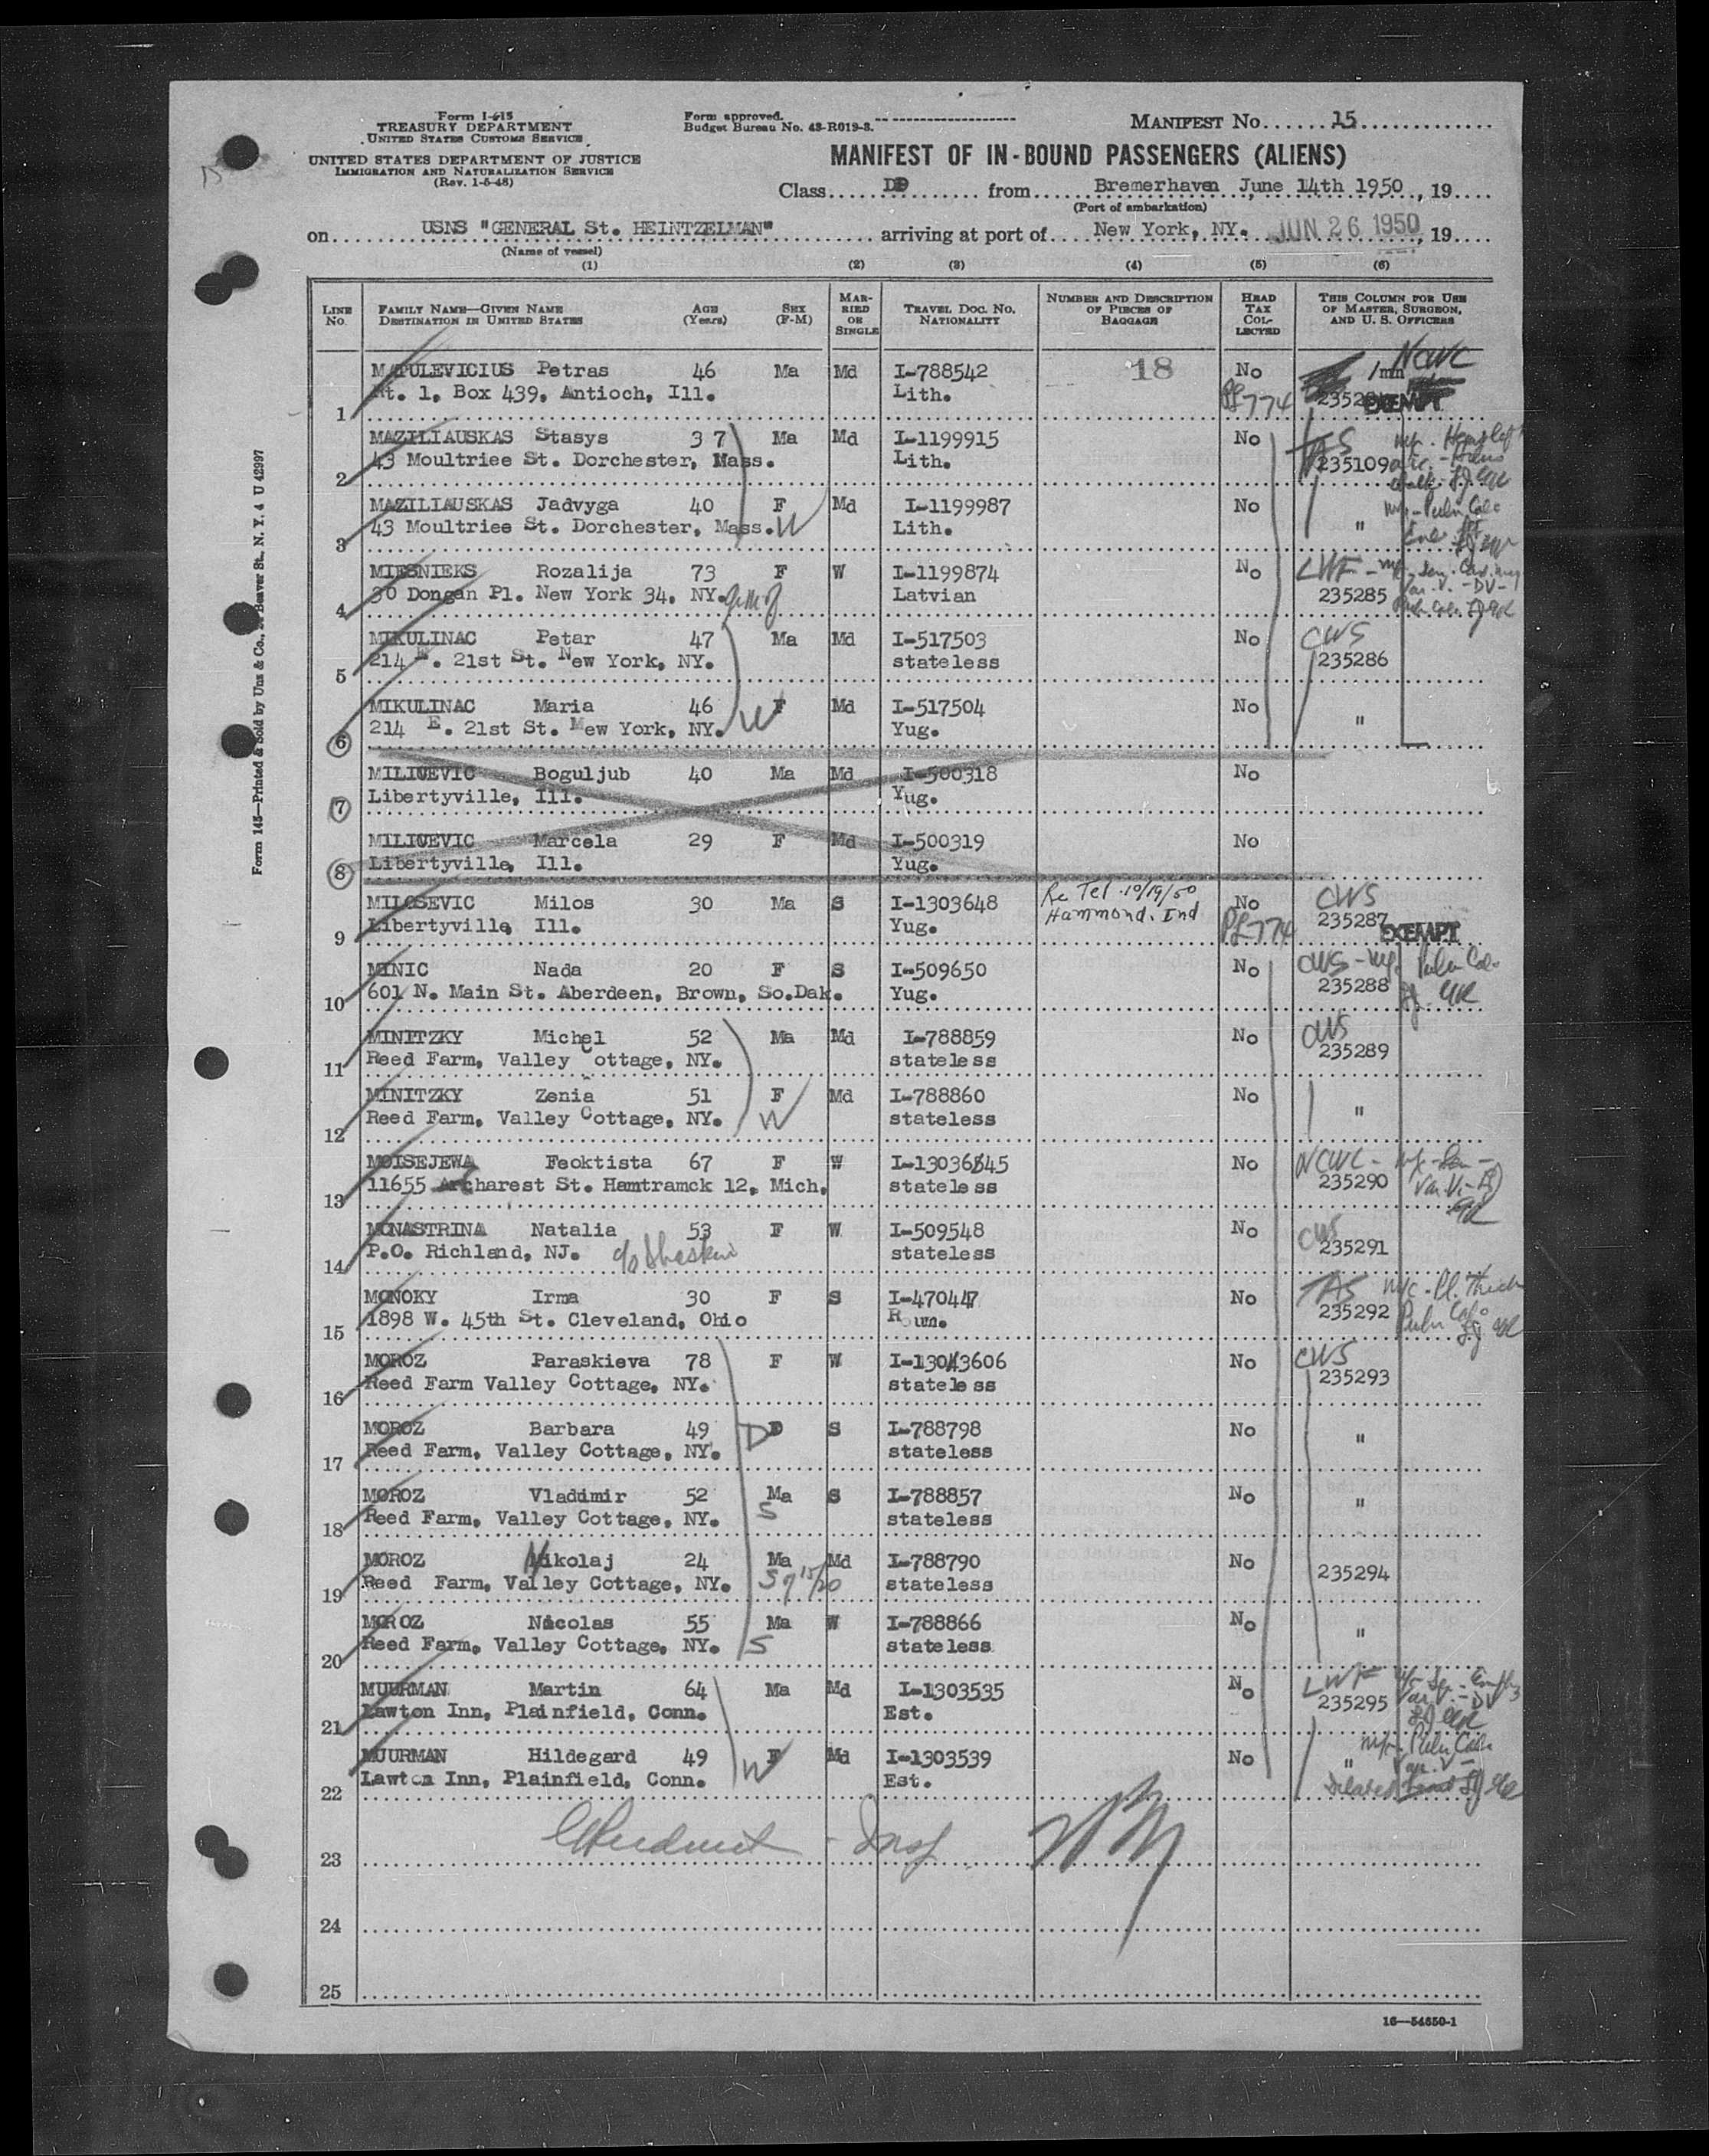 Form I-415
TREASURY DEPARTMENT
UNITED STATES CUSTOMS SERVICE
UNITED STATES DEPARTMENT OF JUSTICE
IMMIGRATION AND NATURALIZATION SERVICE
(Rev. 1-5-48)
Form approved.
Budget Bureau No. 43-R019-3.
MANIFEST No. 15
MANIFEST OF IN-BOUND PASSENGERS (ALIENS)
Class DP from Bremerhaven June 14th 1950, 19
(Port of embarkation)
on USNS "GENERAL St. HEINTZELMAN" arriving at port of New York, NY. JUN 26 1950, 19
(Name of vessel)
(1) (2) (3) (4) (5) (6)
LINE No. FAMILY NAME—GIVEN NAME DESTINATION IN UNITED STATES AGE (Years) SEX (F-M) MARRIED OR SINGLE TRAVEL DOC. NO. NATIONALITY NUMBER AND DESCRIPTION OF PIECES OF BAGGAGE HEAD TAX COLLECTED THIS COLUMN FOR USE OF MASTER, SURGEON, AND U. S. OFFICERS
MATULEVICIUS Petras 46 Ma Md I-788542 18 No NCWC
1 Rt. 1, Box 439, Antioch, Ill. Lith. PL774 EXEMPT
MAZILIAUSKAS Stasys 37 Ma Md I-1199915 No
2 43 Moultriee St. Dorchester, Mass. Lith. 235109
MAZILIAUSKAS Jadvyga 40 F Md I-1199987 No
3 43 Moultriee St. Dorchester, Mass. W Lith. "
MIESNIEKS Rozalija 73 F W I-1199874 No LWF
4 30 Dongan Pl. New York 34. NY. Latvian 235285
MIKULINAC Petar 47 Ma Md I-517503 No CWS
5 214 E. 21st St. New York, NY. stateless 235286
MIKULINAC Maria 46 F Md I-517504 No
6 214 E. 21st St. Mew York, NY. W Yug. "
MILICEVIC Boguljub 40 Ma Md I-500318 No
7 Libertyville, Ill. Yug.
MILICEVIC Marcela 29 F Md I-500319 No
8 Libertyville, Ill. Yug.
MILOSEVIC Milos 30 Ma S I-1303648 Re Tel 10/19/50 No CWS
9 Libertyville, Ill. Yug. Hammond. Ind PL774 235287 EXEMPT
MINIC Nada 20 F S I-509650 No CWS
10 601 N. Main St. Aberdeen, Brown, So.Dak. Yug. 235288
MINITZKY Michel 52 Ma Md I-788859 No CWS
11 Reed Farm, Valley Cottage, NY. stateless 235289
MINITZKY Zenia 51 F Md I-788860 No
12 Reed Farm, Valley Cottage, NY. W stateless "
MOISEJEWA Feoktista 67 F W I-1303645 No NCWC
13 11655 charest St. Hamtramck 12, Mich. stateless 235290
MONASTRINA Natalia 53 F W I-509548 No CWS
14 P.O. Richland, NJ. stateless 235291
MONOKY Irma 30 F S I-470447 No
15 1898 W. 45th St. Cleveland, Ohio Roum. 235292
MOROZ Paraskieva 78 F W I-13043606 No CWS
16 Reed Farm Valley Cottage, NY. stateless 235293
MOROZ Barbara 49 D S I-788798 No
17 Reed Farm, Valley Cottage, NY. stateless "
MOROZ Vladimir 52 Ma S I-788857 No
18 Reed Farm, Valley Cottage, NY. S stateless "
MOROZ Nikolaj 24 Ma Md I-788790 No
19 Reed Farm, Valley Cottage, NY. stateless 235294
MOROZ Nicolas 55 Ma W I-788866 No
20 Reed Farm, Valley Cottage, NY. S stateless "
MUURMAN Martin 64 Ma Md I-1303535 No LWF
21 Lawton Inn, Plainfield, Conn. Est. 235295
MUURMAN Hildegard 49 F Md I-1303539 No
22 Lawton Inn, Plainfield, Conn. W Est. "
23
24
25
16—54650-1